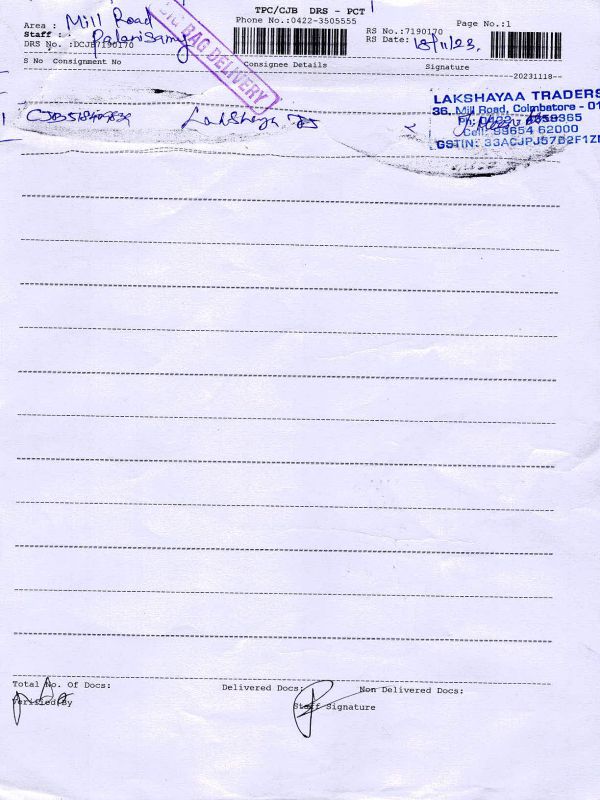 TPC/CJB DRS - PCT
Area : Mill Road
Phone No.:0422-3505555
Page No.:1
Staff : Palanisamy
RS No.:7190170
RS Date: 18/11/23.
DRS No. :DCJB7190170
BIG BAG DELIVERY
S No Consignment No Consignee Details Signature
20231118
LAKSHAYAA TRADERS
36, Mill Road, Coimbatore - 01
Cell: 98654 62000
Total No. Of Docs: Delivered Docs: Non Delivered Docs:
Verified By Staff Signature